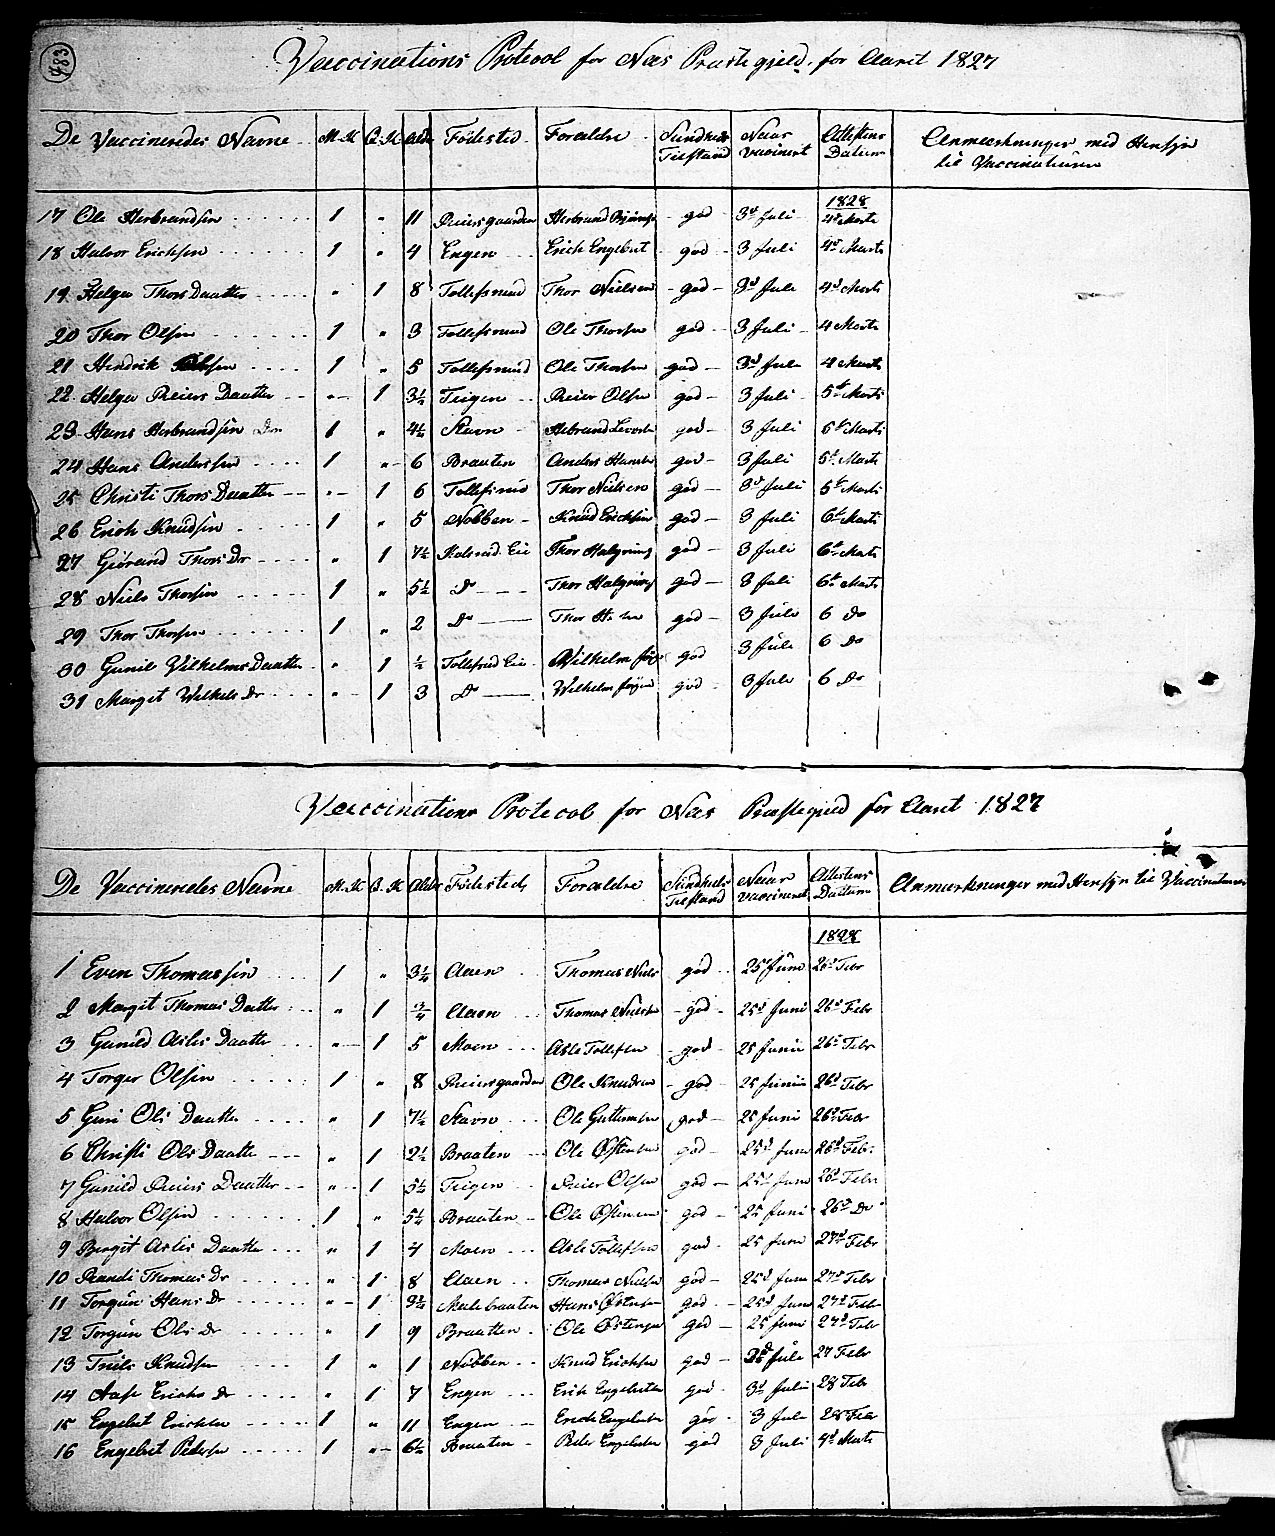 483
Vaccinations Protocol for Næs Præstegjeld for Aaret 1827
De Vaccineredes Navne M.K Q.K Alder Födested Forældre Sundheds Tilstand Naar vaccineret Attestens Datum Anmærkninger med Hensyn til Vaccinationen
1828
17 Ole Herbrandsen 1 " 11 Reiersgaarden Herbrand god 3d Juli 4d Marts
18 Halvor Erichsen 1 " 4 Engen Erich Engebret god 3 Juli 4d Marts
19 Helge Thors Daatter " 1 8 Tollefsrud Thor Nielsen god 3d Juli 4d Marts
20 Thor Olsen 1 " 3 Tollefsrud Ole Thorsen god 3 Juli 4 Marts
21 Hendrik Olsen 1 " 5 Tollefsrud Ole Thorsen god 3d Juli 4 Marts
22 Helge Reiers Daatter " 1 3½ Teigen Reier Olsen god 3 Juli 5t Marts
23 Hans Herbrandsen 1 " 4½ Stavn Hebrand god 3 Juli 5t Marts
24 Hans Anderssen 1 " 6 Braaten Anders Hansen god 3 Juli 5t Marts
25 Christi Thors Daatter " 1 6 Tollefsrud Thor Nielsen god 3d Juli 5t Marts
26 Erich Knudsen 1 " 5 Nobben Knud Erichsen god 3 Juli 6t Marts
27 Giörand Thors Dr " 1 7½ Eie Thor Halgrims god 3 Juli 6t Marts
28 Niels Thorsen 1 " 5½ Do Thor Halgrims god 3 Juli 6t Marts
29 Thor Thorsen 1 " 2 Do Thor god 3 Juli 6 Do
30 Gunil Vilhelms Daatter " 1 ½ Tollefsrud Eie Wilhelm god 3 Juli 6 Do
31 Margit Wilhels Dr " 1 3 Do Wilhelm god 3 Juli 6 Do
Vaccinations Protocol for Næs Præstegjeld for Aaret 1827
De Vaccineredes Navne M.K Q.K Alder Födested Forældre Sundheds Tilstand Naar vaccineret Attestens Dattum Anmærkninger med Hensyn til Vaccinationen
1828
1 Even Thomassen 1 " 3¼ Aaen Thomas Niels god 25d Juni 26d Febr
2 Margit Thomas Datter " 1 ¾ Aaen Thomas Nielsen god 25d Juni 26d Febr
3 Gunild Asles Daatter " 1 5 Moen Asle Tollefsen god 25 Junii 26d Febr
4 Torger Olsen 1 " 8 Reiersgaarden Ole Knudsen god 25 Junii 26d Febr
5 Guri Ols Daatter " 1 7½ Stavn Ole Guttormsen god 25 Juni 26d Febr
6 Christi Ols Daatter " 1 2½ Braaten Ole Östensen god 25d Juni 26d Febr
7 Gunild Reiers Daatter " 1 5½ Teigen Reier Olsen god 25d Juni 26d Febr
8 Halvor Olsen 1 " 5¼ Braaten Ole Östensen god 25 Juni 26d Do
9 Bergit Asles Daatter " 1 4 Moen Asle Tollefsen god 25 Juni 27d Febr
10 Randi Thomas Dr " 1 8 Aaen Thomas Nielsen god 25d Juni 27d Febr
11 Torgun Hans Dr " 1 Hans Östensen god 25d Juni 27d Febr
12 Torgun Ols Dr " 1 9 Braaten Ole Östensen god 25 Juni 27d Febr
13 Knudsen 1 " 1 Nobben Knud Erichsen god Juli 27 Febr
14 Aase Erichs Dr " 1 7 Engen Erik Engebretsen god 3d Julii 28 Febr
15 Engebret Erichsen 1 " 11 Engen Erich Engebretsen god 3 Juli 28 Febr
16 Engebret Pedersen 1 " 6½ Braaten Peder Engebretsen god 3 Juli 4d Marts